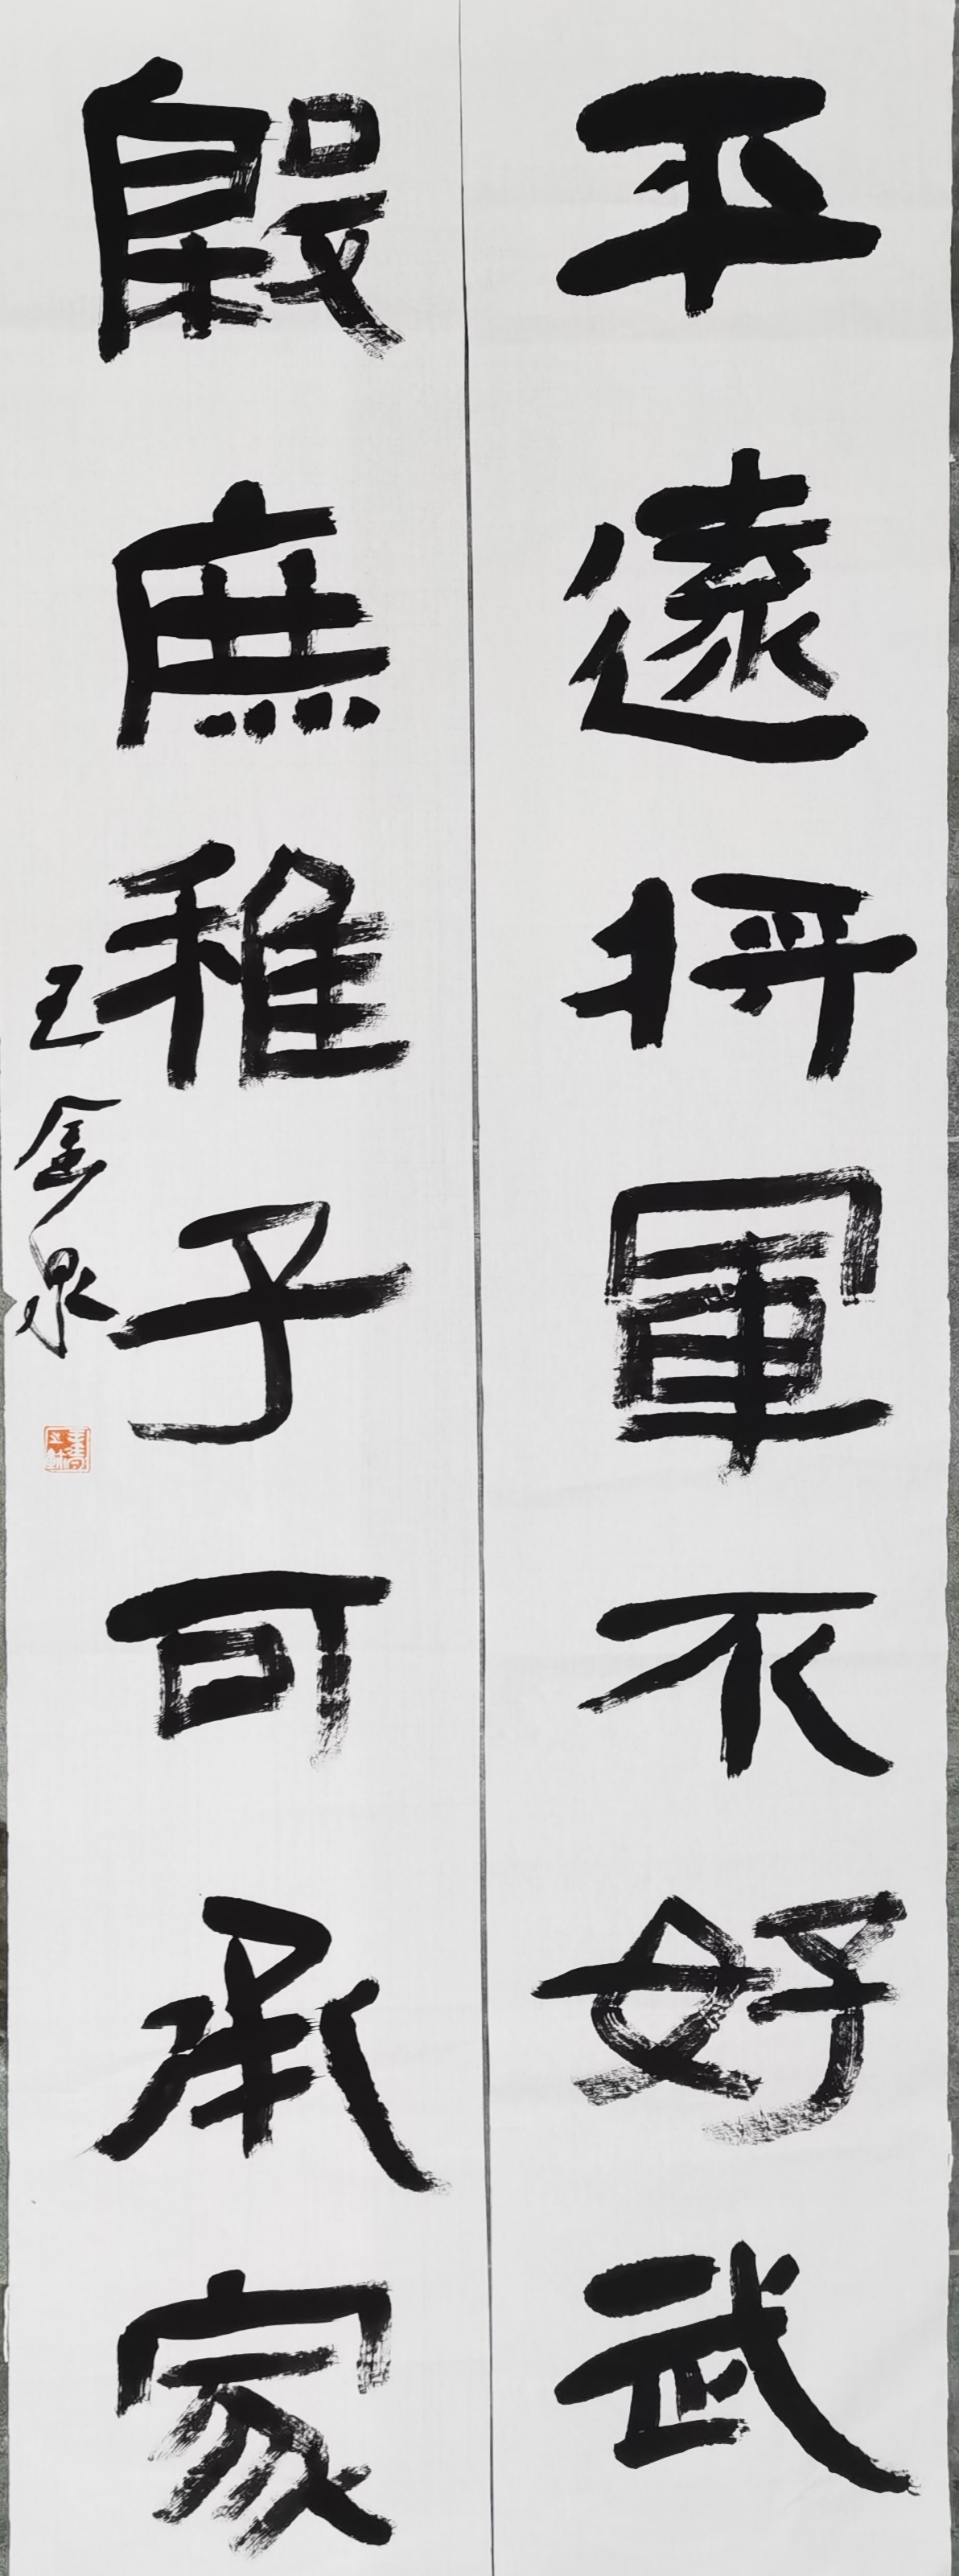 平遠將軍不好武
殷庶稚子可承家
王金泉